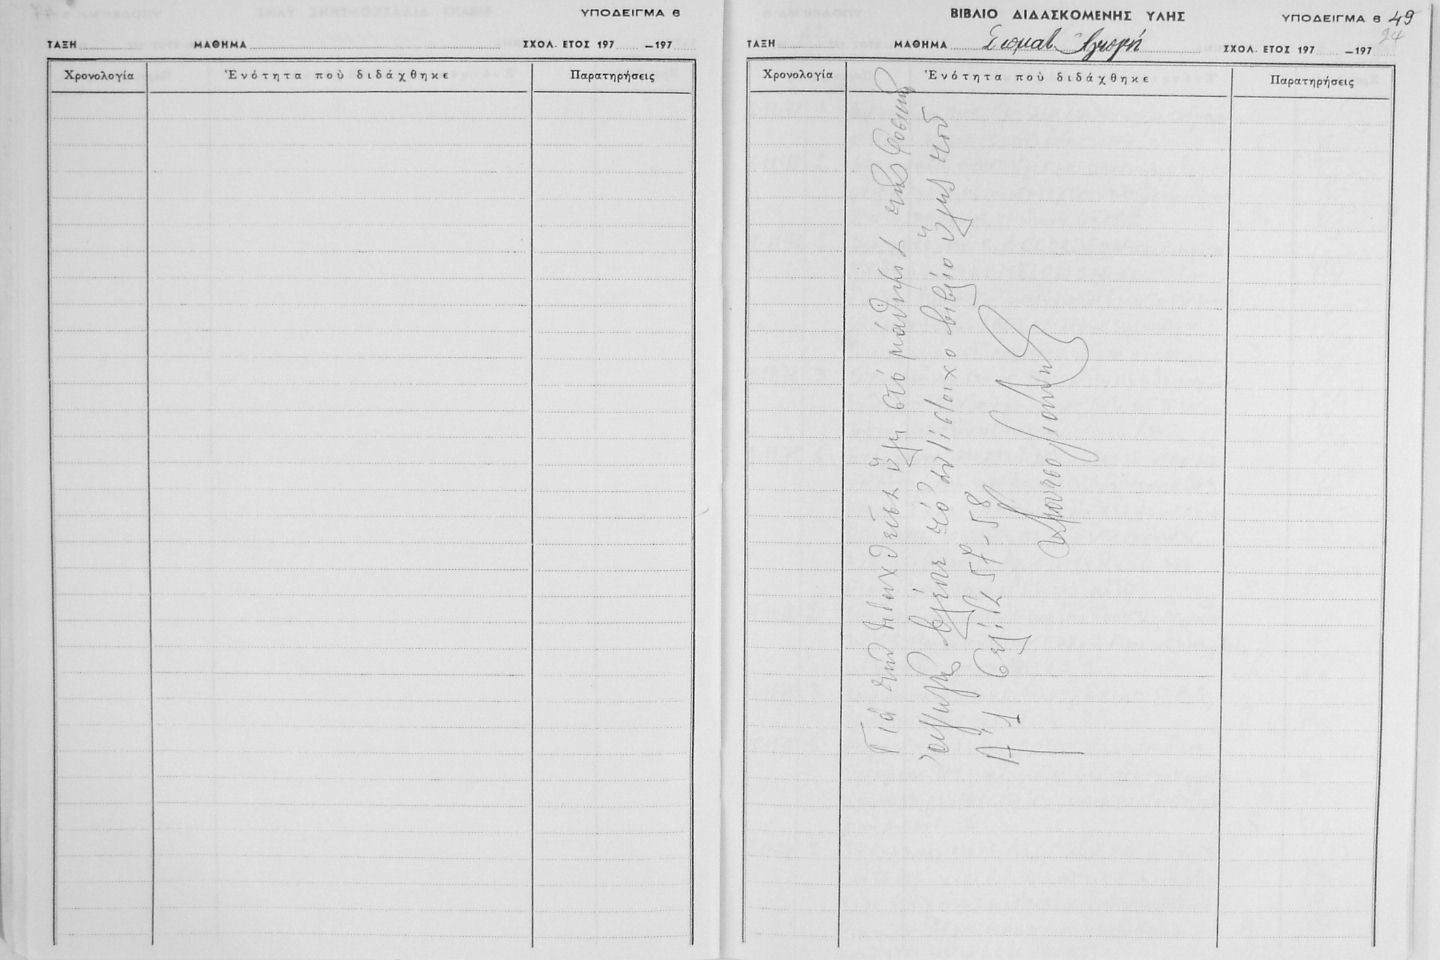 ΥΠΟΔΕΙΓΜΑ 6
ΤΑΞΗ ΜΑΘΗΜΑ ΣΧΟΛ. ΕΤΟΣ 197 —197
Χρονολογία Ἑνότητα ποὺ διδάχθηκε Παρατηρήσεις
ΒΙΒΛΙΟ ΔΙΔΑΣΚΟΜΕΝΗΣ ΥΛΗΣ ΥΠΟΔΕΙΓΜΑ 6 49
24
ΤΑΞΗ ΜΑΘΗΜΑ Σωματ. Ἀγωγή ΣΧΟΛ. ΕΤΟΣ 197 —197
Χρονολογία Ἑνότητα ποὺ διδάχθηκε Παρατηρήσεις
Γιά τήν διδαχθεῖσα ὕλη στό μάθημα τῆς φυσικῆς
ἀγωγῆς βλέπε τό ἀντίστοιχο βιβλίο ὕλης τοῦ
Α΄1 σελίδα 57-58